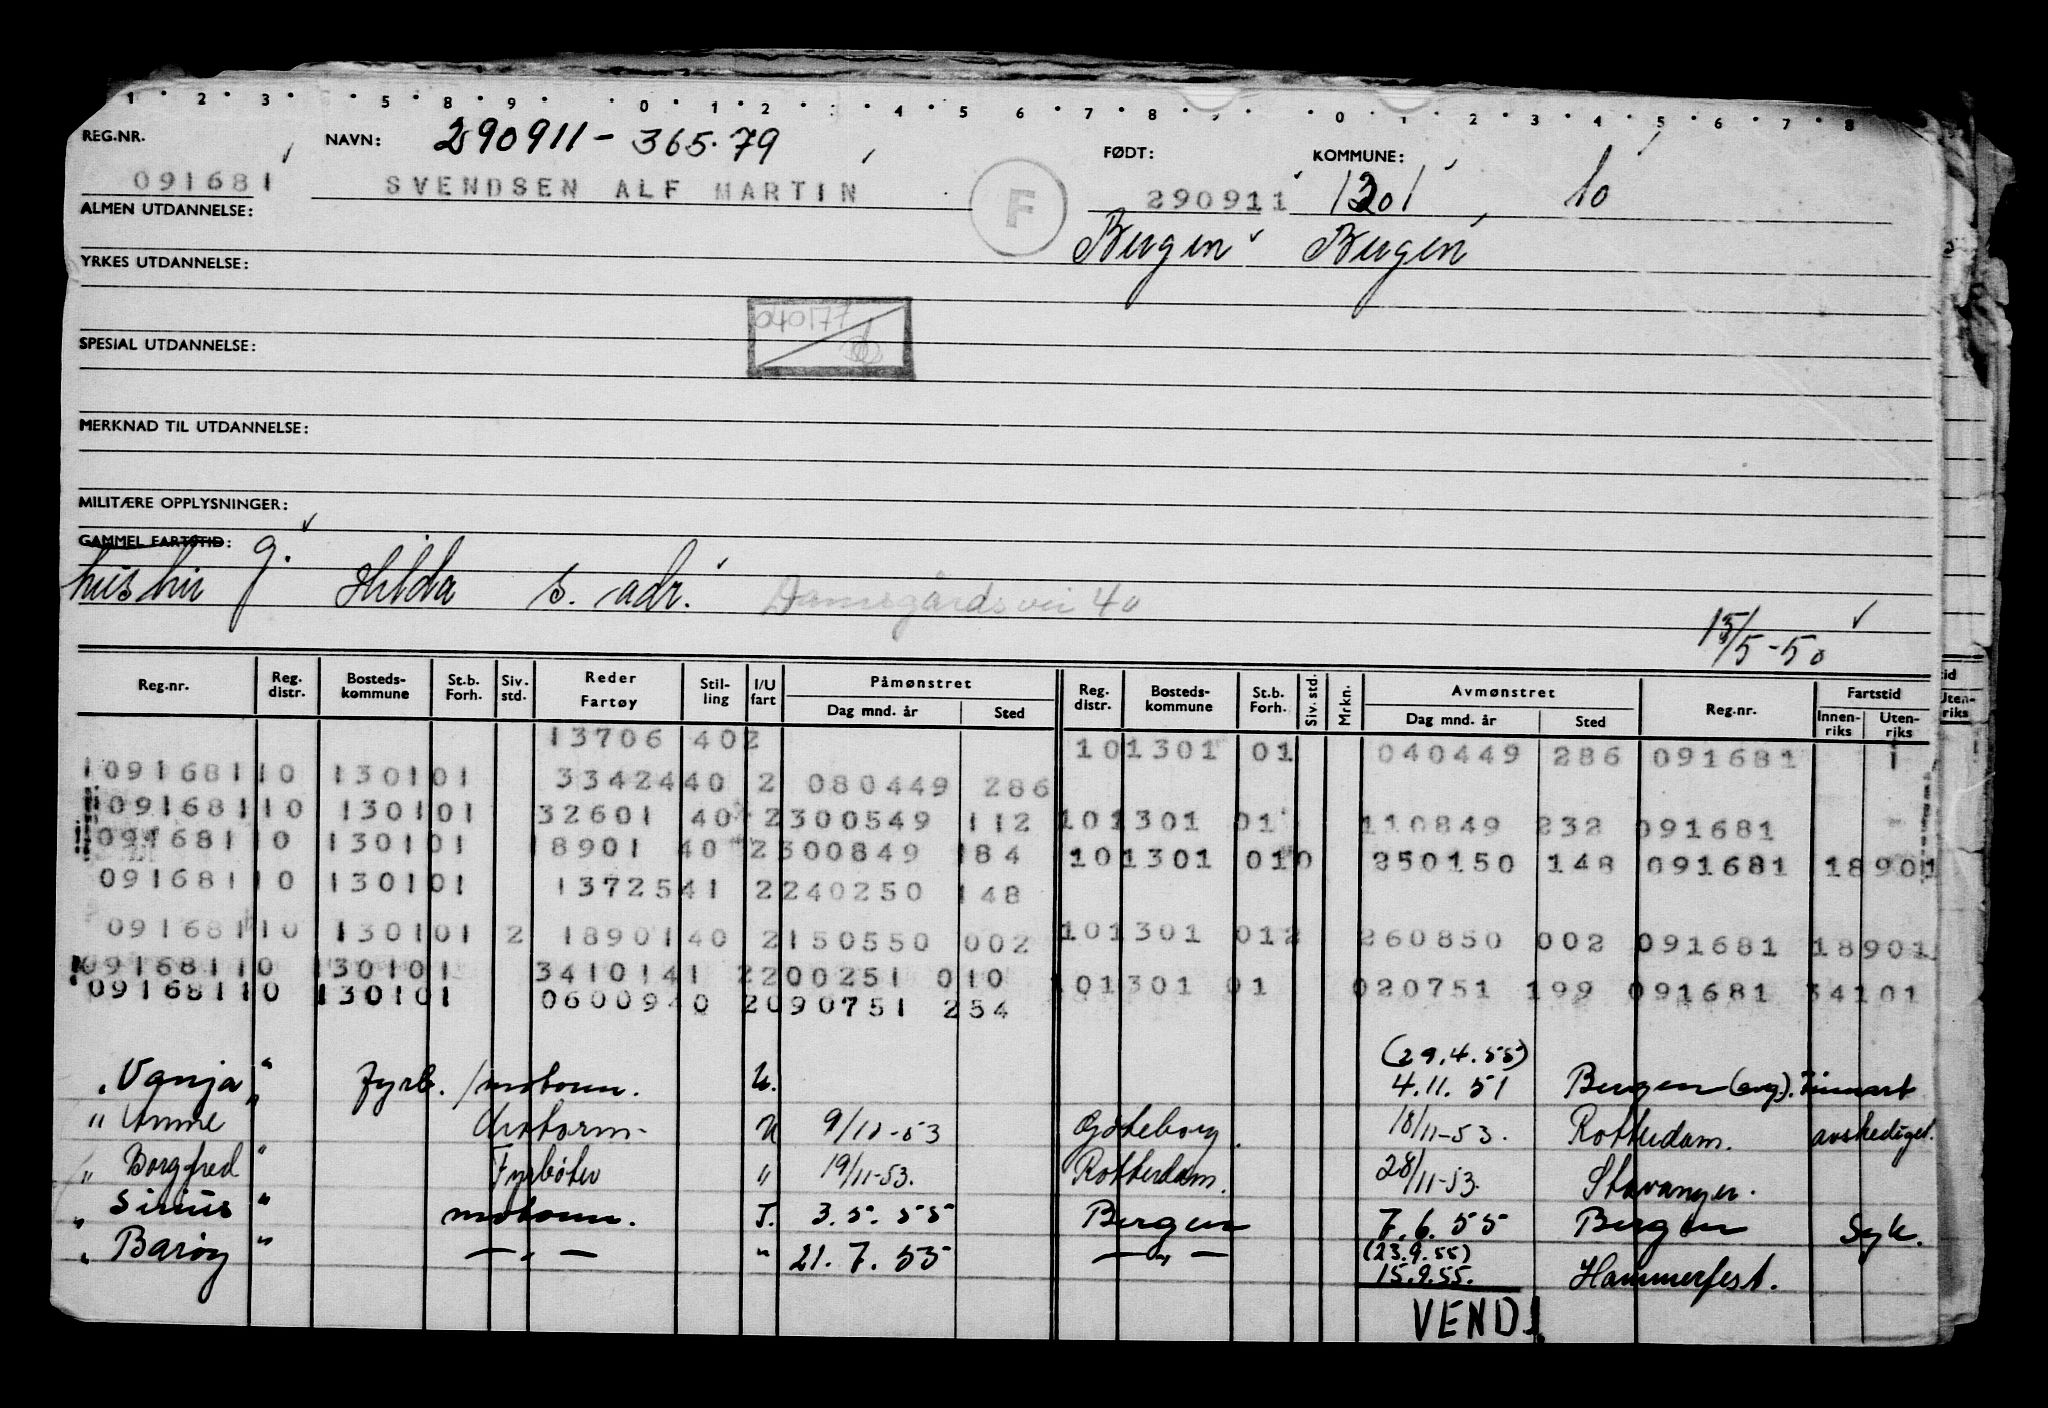 1 · 2 · 3 · · 5 · 8 · 9 · · 0 · 1 · 2 · · 4 · 5 · 6 · 7 · 8 · · · 0 · 1 · 2 · 3 · 4 · 5 · 6 · 7 · 8
REG.NR. NAVN: 290911-365.79 FØDT: KOMMUNE:
091681 SVENDSEN ALF MARTIN F 290911 1301 10
ALMEN UTDANNELSE: Bergen Bergen
YRKES UTDANNELSE:
040177
SPESIAL UTDANNELSE:
MERKNAD TIL UTDANNELSE:
MILITÆRE OPPLYSNINGER:
GAMMEL FARTSTID: g.
hustru Hilda s. adr. Damsgårdsvei 40
15/5-50
Reg.nr. Reg. distr. Bosteds-kommune St.b. Forh. Siv. std. Reder Fartøy Stil-ling I/U fart Påmønstret Dag mnd. år Sted Reg. distr. Bosteds-kommune St.b. Forh. Siv. std. Mrkn. Avmønstret Dag mnd. år Sted Reg.nr. Fartstid Innen-riks Uten-riks
13706 402 101301 01 040449 286 091681 1
109168110 130101 3342440 2 080449 286
09168110 130101 32601 40 2300549 112 101301 01 110849 232 091681
09168110 130101 18901 40 2300849 184 101301 010 250150 148 091681 18901
09168110 130101 1372541 2240250 148
09168110 130101 2 1890140 2150550 002 101301 012 260850 002 091681 18901
09168110 130101 3410141 2200251 010 101301 01 020751 199 091681 34101
09168110 130101 0600940 2090751 254
(29.4.55)
" Vanja " fyrb./motorm. U. 4.11.51 Bergen (avg).
" Anne " Motorm. U 9/11-53 Göteborg. 18/11-53. Rotterdam. avskediget.
" Borgfred " Fyrbøter " 19/11-53. Rotterdam. 28/11-53. Stavanger.
" Sirius " motorm. I. 3.5.55 Bergen 7.6.55 Bergen Syk.
" Barøy " — " — " 21.7.55 — " — (23.9.55)
15.9.55. Hammerfest.
VEND!